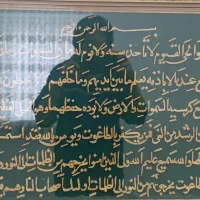 بسم الله الرحمن الرحيم
الحي القيوم لا تأخذه سنة ولا نوم له ما في
عنده إلا بإذنه يعلم ما بين أيديهم وما خلفهم
كرسيه السموات والأرض ولا يؤده حفظهما وهو
الرشد من الغي فمن يكفر بالطاغوت ويؤمن بالله فقد استمسك
لها والله سميع عليم الله ولي الذين آمنوا يخرجهم من الظلمات إلى النور
الطاغوت يخرجونهم من النور إلى الظلمات أولئك أصحاب النار هم فيها